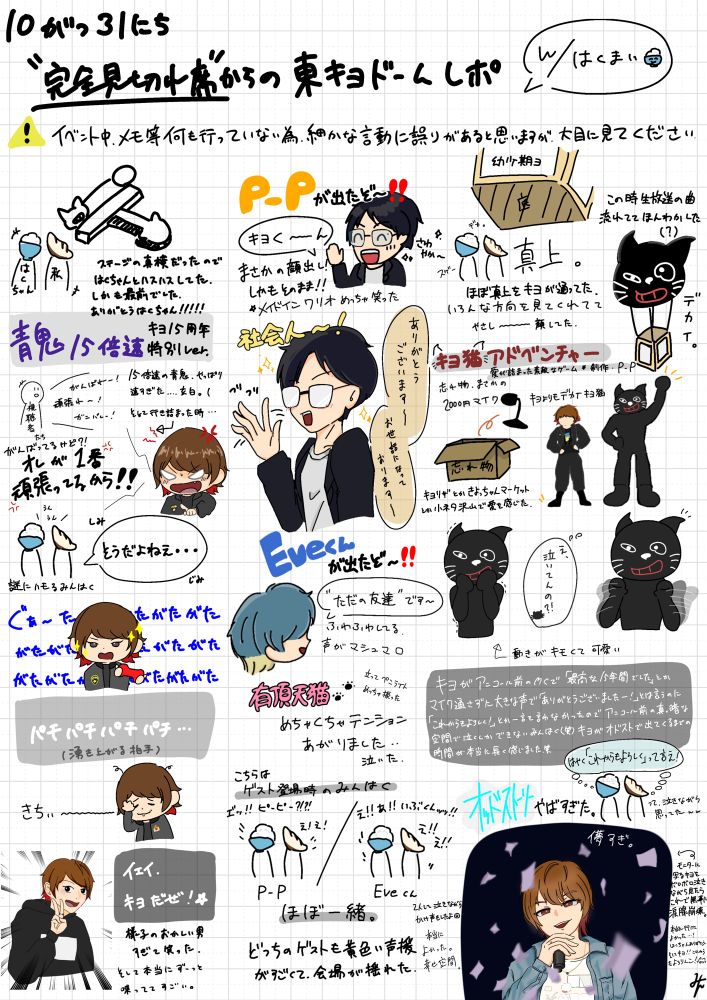 10がつ31にち
"完全見切れ席"からの 東キヨドームレポ
w/はくまい
イベント中、メモ等何も行っていない為、細かな言動に誤りがあると思いますが、大目に見てください
はくちゃん
私
ステージの真横だったので
はくちゃんとハスハスしてた。
しかも最前でした。
ありがとうはくちゃん!!!!!
青鬼 15倍速
キヨ15周年
特別ver.
視聴者たち
がんばれー!
頑張れ〜!
ガンバレー!
15倍速の青鬼、やっぱり
速すぎた
そして行き詰まった時…
がんばってるけど?!
オレが1番
頑張ってるから!!
うん
うん
しみ
じみ
そうだよねえ・・・
謎にハモるみんはく
ぐぁ〜た
がたがたがた
がたがた
がたがたがた
パチ パチ パチ パチ …
(湧き上がる拍手)
きちぃ〜
イェイ.
キヨだぜ!
様子のおかしい男
すぎて笑った.
そして本当にずーっと
喋っててすごい.
P-Pが出たぞ〜!!
キヨく〜ん
さわやか〜
まさかの顔出し!
しかもそのまま!!
*メイドイン ワリオ めっちゃ笑った
社会人〜!
ありがとうございます〜
お世話になっております〜
Eveくんが出たぞ〜!!
"ただの友達"です〜
ふわふわしてる.
声がマシュマロ
有頂天猫
めちゃくちゃテンション
あがりました..
泣いた.
こちらは
ゲスト登場時のみんはく
エッ!! ピーピー?!?!
え!え!
P-P
え!!あ!!いぶくんッッ!!
え!!
え!!
Eveくん
ほぼ一緒。
どっちのゲストも黄色い声援
がすごくて、会場が揺れた.
幼少期ヨ
この時生放送の曲
流れててほんわかした
(?)
真上。
ほぼ真上をキヨが通ってった.
いろんな方向を見てくれてて
やさし〜顔してた.
デカイ。
キヨ猫アドベンチャー
愛が詰まった素敵なゲーム*創作:P-P
忘れ物、まさかの
2000円マイク
忘れ物
キヨよりもデカイキヨ猫
キヨリザとかきよちゃんマーケット
とか小ネタ沢山で愛を感じた.
え、泣いてんの?!
動きがキモくて可愛い
キヨがアンコール前のMCで「最高な15年間でした」とか
マイク通さずに大きな声で「ありがとうございましたー!」とは言うのに
「これからもよろしく」とか一言も言わなかったのでアンコール前の真っ暗な
空間で泣くしかできないみんはく(笑)キヨがオドストで出てくるまでの
時間が本当に長く感じました笑
はやく「これからもよろしく」ってえ!
って、泣きながら
思ってた
オッドストリート やばすぎた。
儚すぎ。
2人して泣きながら
本当に
よかった。
幸せ空間